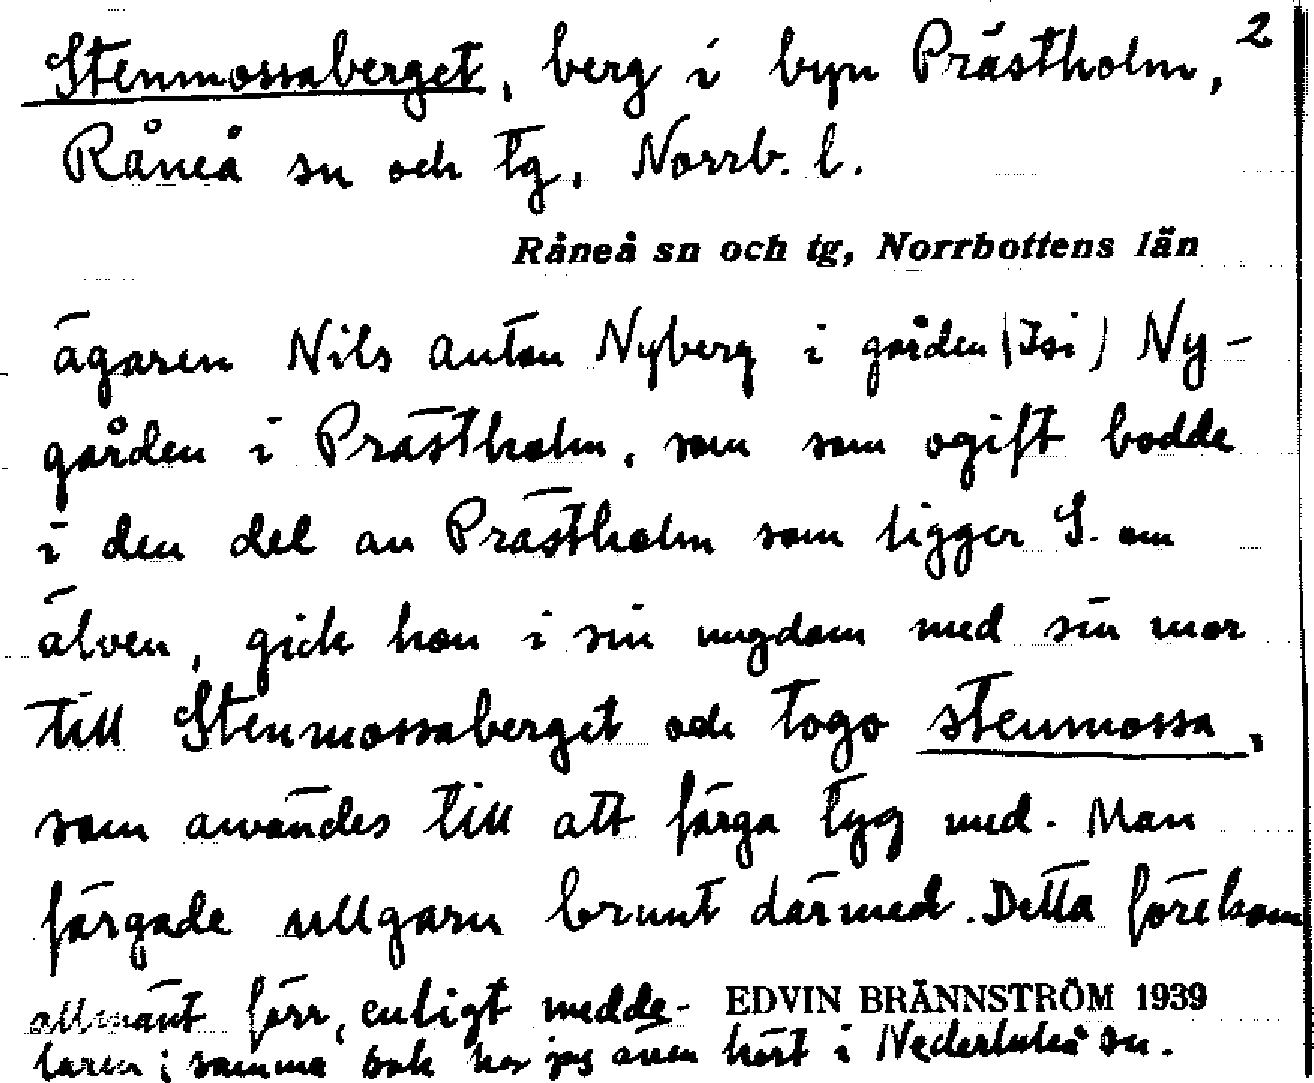 2
Stenmossaberget, berg i byn Prästholm,
Råneå sn och tg, Norrb. l.
Råneå sn och tg, Norrbottens län
ägaren Nils Anton Nyberg i gården (Isi) Ny-
gården i Prästholm, som som ogift bodde
i den del av Prästholm som ligger S. om
älven, gick han i sin ungdom med sin mor
till Stenmossaberget och togo stenmossa,
som användes till att färga tyg med. Man
färgade ullgarn brunt därmed. Detta förekom
allmänt förr, enligt medde-
EDVIN BRÄNNSTRÖM 1939
laren; samma sak har jag även hört i Nederluleå sn.